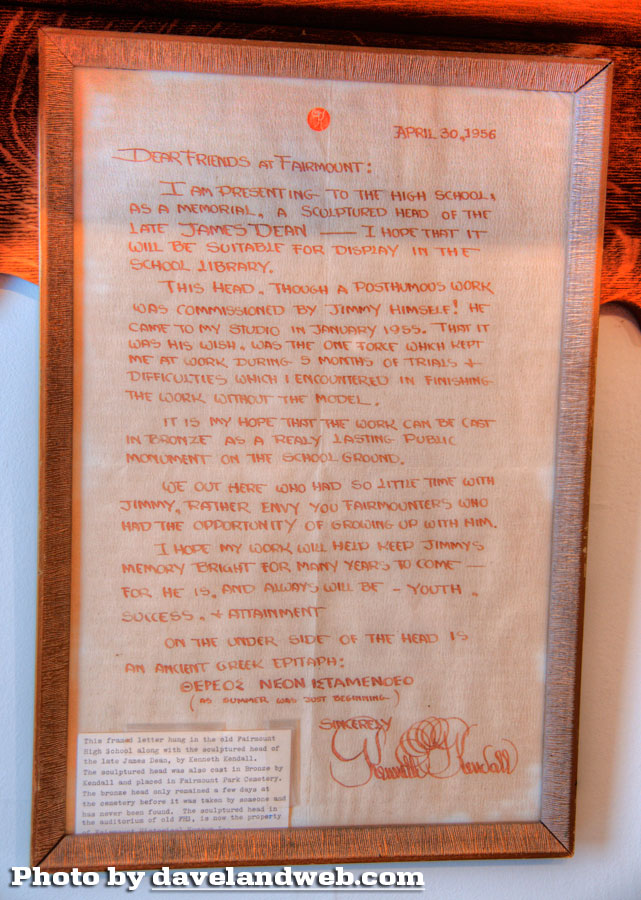 APRIL 30, 1956
DEAR FRIENDS AT FAIRMOUNT:
I AM PRESENTING TO THE HIGH SCHOOL,
AS A MEMORIAL, A SCULPTURED HEAD OF THE
LATE JAMES DEAN — I HOPE THAT IT
WILL BE SUITABLE FOR DISPLAY IN THE
SCHOOL LIBRARY.
THIS HEAD, THOUGH A POSTHUMOUS WORK
WAS COMMISSIONED BY JIMMY HIMSELF! HE
CAME TO MY STUDIO IN JANUARY 1955. THAT IT
WAS HIS WISH, WAS THE ONE FORCE WHICH KEPT
ME AT WORK DURING 5 MONTHS OF TRIALS +
DIFFICULTIES WHICH I ENCOUNTERED IN FINISHING
THE WORK WITHOUT THE MODEL.
IT IS MY HOPE THAT THE WORK CAN BE CAST
IN BRONZE AS A REALY LASTING PUBLIC
MONUMENT ON THE SCHOOL GROUND.
WE OUT HERE WHO HAD SO LITTLE TIME WITH
JIMMY, RATHER ENVY YOU FAIRMOUNTERS WHO
HAD THE OPPORTUNITY OF GROWING UP WITH HIM.
I HOPE MY WORK WILL HELP KEEP JIMMYS
MEMORY BRIGHT FOR MANY YEARS TO COME —
FOR HE IS, AND ALWAYS WILL BE – YOUTH,
SUCCESS, + ATTAINMENT
ON THE UNDER SIDE OF THE HEAD IS
AN ANCIENT GREEK EPITAPH:
ΘΕΡΕΟΣ ΝΕΟΝ ΙΣΤΑΜΕΝΟΕΟ
(AS SUMMER WAS JUST BEGINNING)
SINCERELY
Kenneth Kendall
This framed letter hung in the old Fairmount
High School along with the sculptured head of
the late James Dean, by Kenneth Kendall.
The sculptured head was also cast in Bronze by
Kendall and placed in Fairmount Park Cemetery.
The bronze head only remained a few days at
the cemetery before it was taken by someone and
has never been found. The sculptured head in
the auditorium of old FHS, is now the property
Photo by davelandweb.com